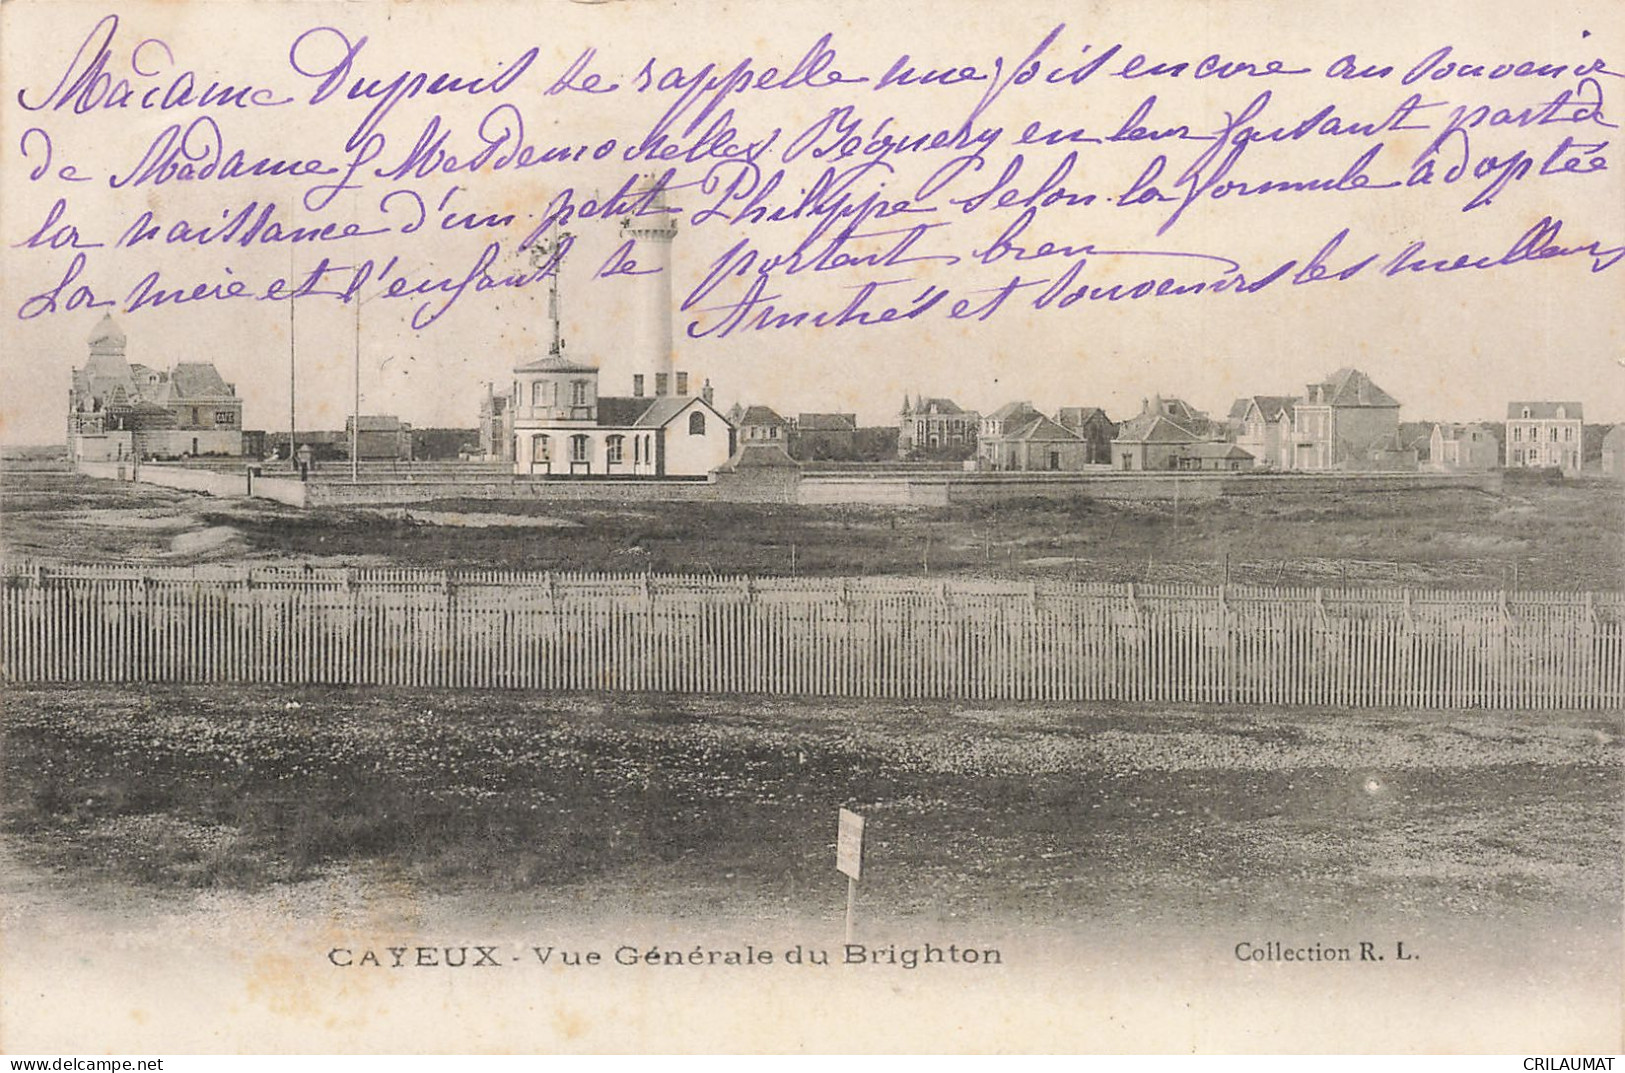 Madame Dupuis se rappelle une fois encore au souvenir
de Madame & Mesdemoiselles Béguery en leur faisant part de
la naissance d'un petit Philippe selon la formule adoptée
La mère et l'enfant se portent bien
Amitiés et souvenirs les meilleurs
CAFÉ
CAYEUX - Vue Générale du Brighton
Collection R. L.
CRILAUMAT